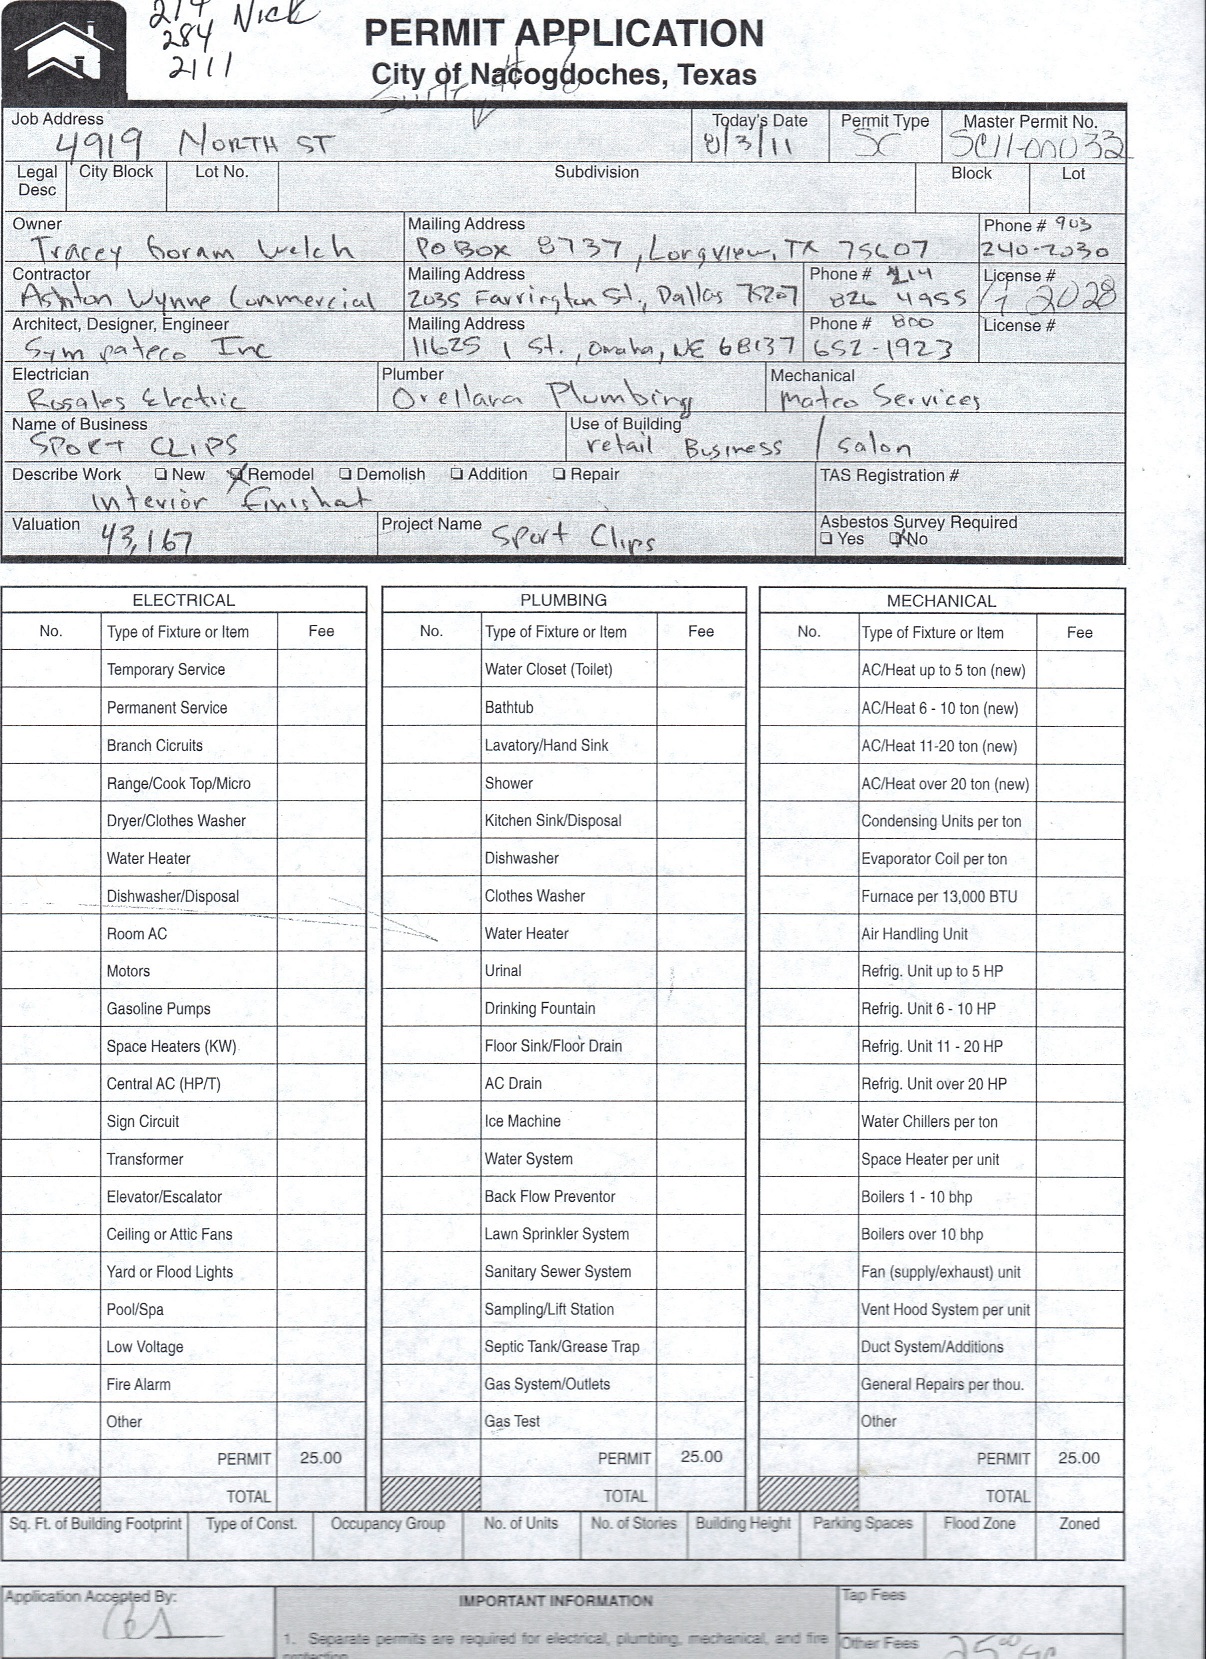 214 Nick
284
2111
PERMIT APPLICATION
City of Nacogdoches, Texas
Suite # 6
Job Address
4919 NORTH ST
Today's Date
8/3/11
Permit Type
SC
Master Permit No.
SC11-00032
Legal Desc
City Block
Lot No.
Subdivision
Block
Lot
Owner
Tracey Goram Welch
Mailing Address
PO BOX 8737, Longview, TX 75607
Phone # 903
240-2030
Contractor
Ashton Wynne Commercial
Mailing Address
2035 Farrington St., Dallas 75207
Phone # 214
826 4955
License #
2028
Architect, Designer, Engineer
Sympateco Inc
Mailing Address
11625 I St., Omaha, NE 68137
Phone # 800
652-1923
License #
Electrician
Rosales Electric
Plumber
Orellana Plumbing
Mechanical
Matco Services
Name of Business
SPORT CLIPS
Use of Building
retail Business / Salon
Describe Work New Remodel Demolish Addition Repair
Interior finishout
TAS Registration #
Valuation
43,167
Project Name
Sport Clips
Asbestos Survey Required
Yes No
ELECTRICAL
No. Type of Fixture or Item Fee
Temporary Service
Permanent Service
Branch Cicruits
Range/Cook Top/Micro
Dryer/Clothes Washer
Water Heater
Dishwasher/Disposal
Room AC
Motors
Gasoline Pumps
Space Heaters (KW)
Central AC (HP/T)
Sign Circuit
Transformer
Elevator/Escalator
Ceiling or Attic Fans
Yard or Flood Lights
Pool/Spa
Low Voltage
Fire Alarm
Other
PERMIT 25.00
TOTAL
PLUMBING
No. Type of Fixture or Item Fee
Water Closet (Toilet)
Bathtub
Lavatory/Hand Sink
Shower
Kitchen Sink/Disposal
Dishwasher
Clothes Washer
Water Heater
Urinal
Drinking Fountain
Floor Sink/Floor Drain
AC Drain
Ice Machine
Water System
Back Flow Preventor
Lawn Sprinkler System
Sanitary Sewer System
Sampling/Lift Station
Septic Tank/Grease Trap
Gas System/Outlets
Gas Test
PERMIT 25.00
TOTAL
MECHANICAL
No. Type of Fixture or Item Fee
AC/Heat up to 5 ton (new)
AC/Heat 6 - 10 ton (new)
AC/Heat 11-20 ton (new)
AC/Heat over 20 ton (new)
Condensing Units per ton
Evaporator Coil per ton
Furnace per 13,000 BTU
Air Handling Unit
Refrig. Unit up to 5 HP
Refrig. Unit 6 - 10 HP
Refrig. Unit 11 - 20 HP
Refrig. Unit over 20 HP
Water Chillers per ton
Space Heater per unit
Boilers 1 - 10 bhp
Boilers over 10 bhp
Fan (supply/exhaust) unit
Vent Hood System per unit
Duct System/Additions
General Repairs per thou.
Other
PERMIT 25.00
TOTAL
Sq. Ft. of Building Footprint
Type of Const.
Occupancy Group
No. of Units
No. of Stories
Building Height
Parking Spaces
Flood Zone
Zoned
Application Accepted By:
IMPORTANT INFORMATION
1. Separate permits are required for electrical, plumbing, mechanical, and fire
protection.
Tap Fees
Other Fees 25.00